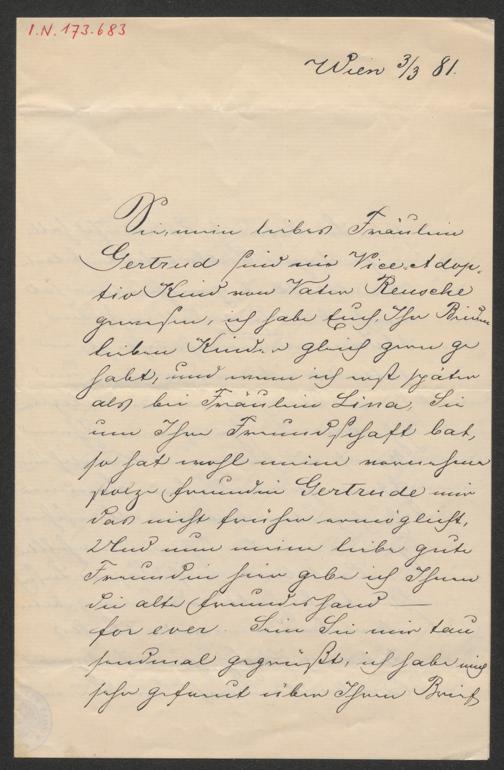 I.N. 173.683
Wien 3/3 81.
Sie, mein liebes Fräulein
Gertrud sind mir Vice-Adop-
tiv Kind von Vater Reusche
gewesen, ich habe Euch, Ihr
lieben Kinder gleich gern ge
habt, und wenn ich erst später
als bei Fräulein Lina, Sie
um Ihre Freundschaft bat,
so hat wohl meine vornehme
stolze Freundin Gertrude mir
das nicht früher ermöglicht,
Und nun meine liebe gute
Freundin hier gebe ich Ihnen
die alte Freundeshand —
for ever. Sein Sie mir tau
sendmal gegrüßt, ich habe mich
sehr gefreut über Ihren Brief